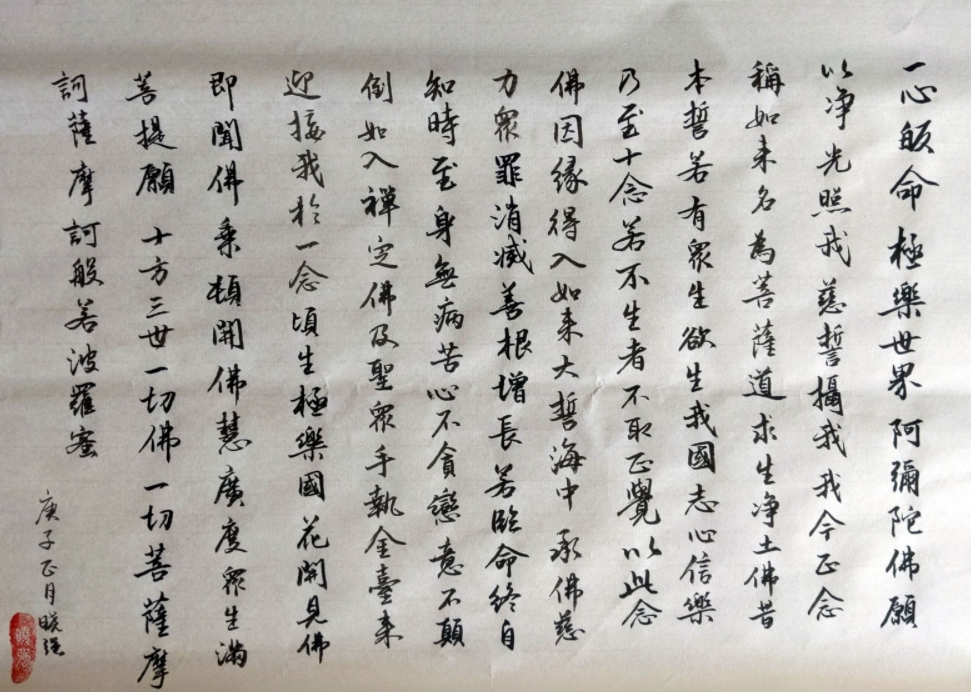 一心皈命極樂世界阿彌陀佛願
以净光照我慈誓攝我我今正念
稱如来名為菩薩道求生净土佛昔
本誓若有眾生欲生我國志心信樂
乃至十念若不生者不取正覺以此念
佛因緣得入如来大誓海中承佛慈
力眾罪消滅善根增長若臨命終自
知時至身無病苦心不貪戀意不顛
倒如入禪定佛及聖眾手執金臺来
迎接我於一念頃生極樂國花開見佛
即聞佛乘頓開佛慧廣度眾生滿
菩提願 十方三世一切佛 一切菩薩摩
訶薩摩訶般若波羅蜜
庚子正月